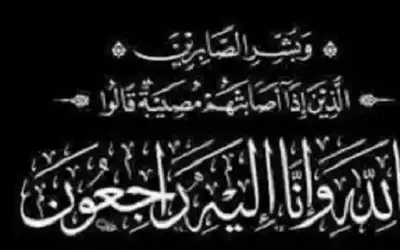 وَبَشِّرِ الصَّابِرِينَ
الَّذِينَ إِذَا أَصَابَتْهُمْ مُصِيبَةٌ قَالُوا
لِلَّهِ وَإِنَّا إِلَيْهِ رَاجِعُونَ